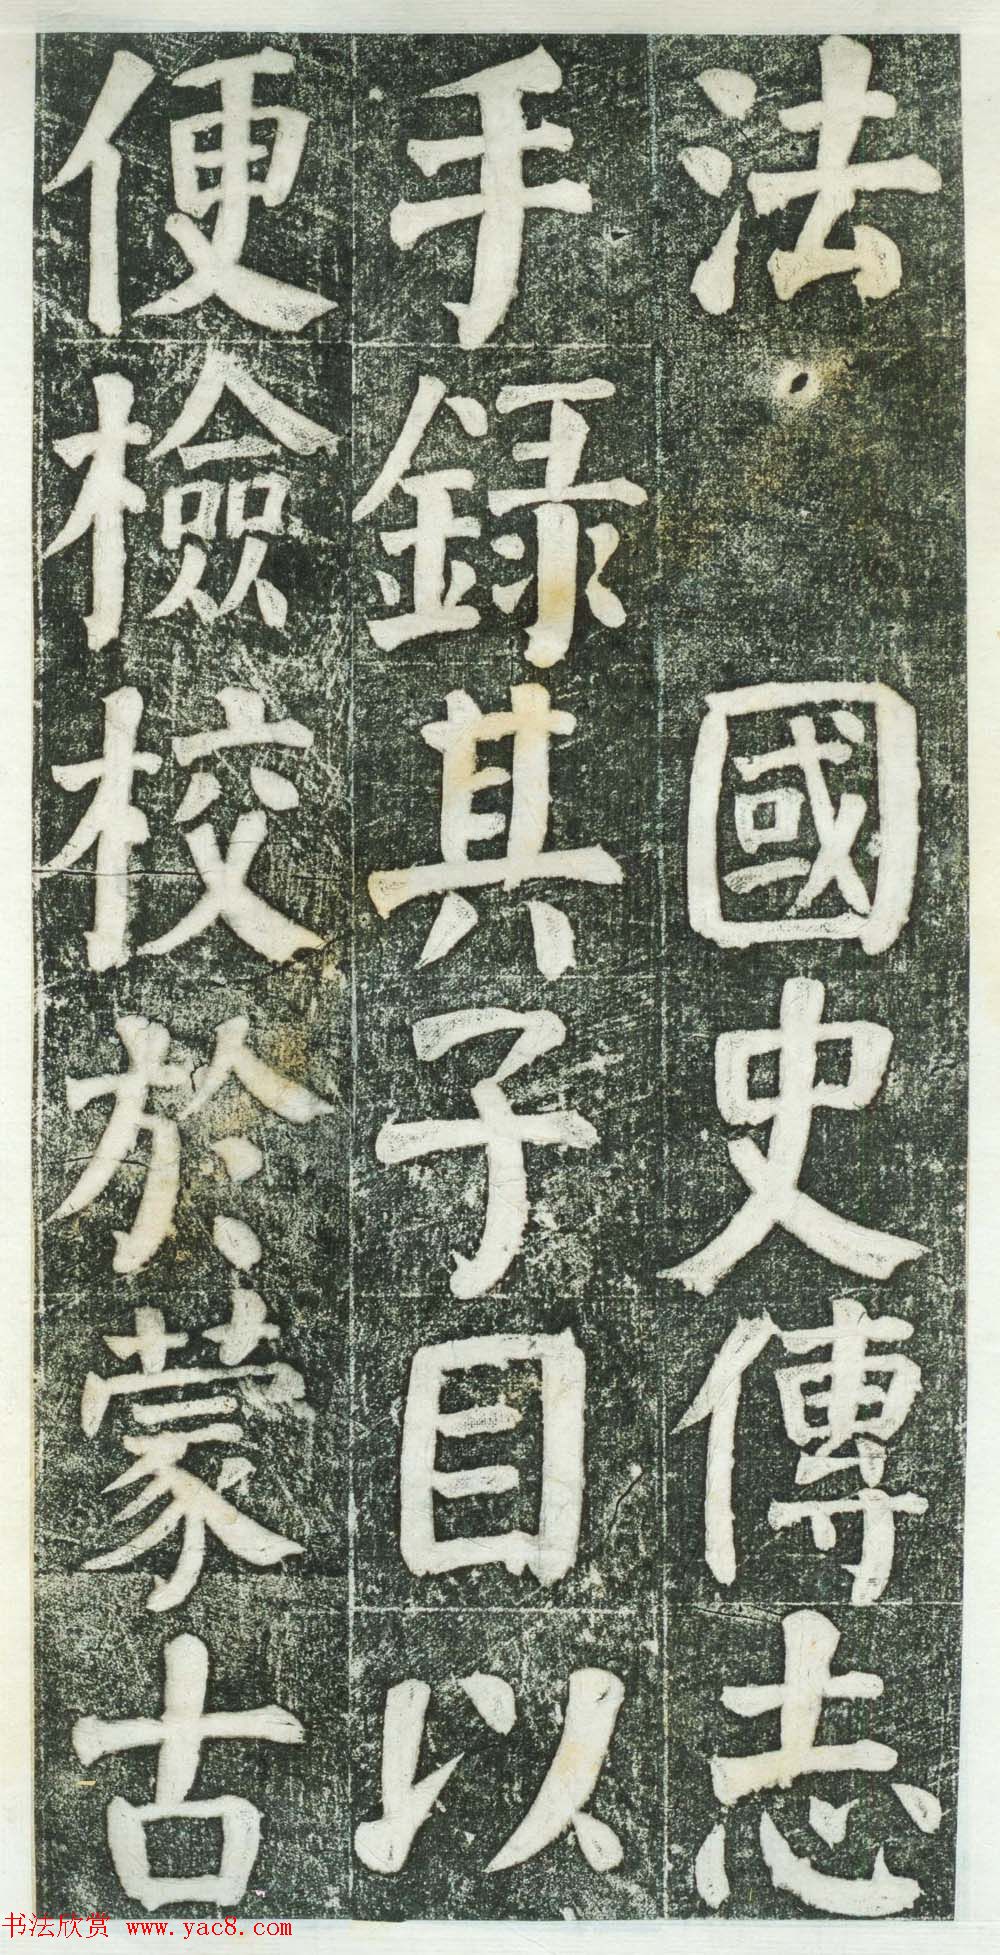 法　國史傳志
手録其子目以
便檢校於蒙古
书法欣赏 www.yac8.com